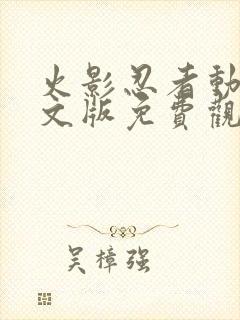 火影忍者動
文版免費觀
吴樟强